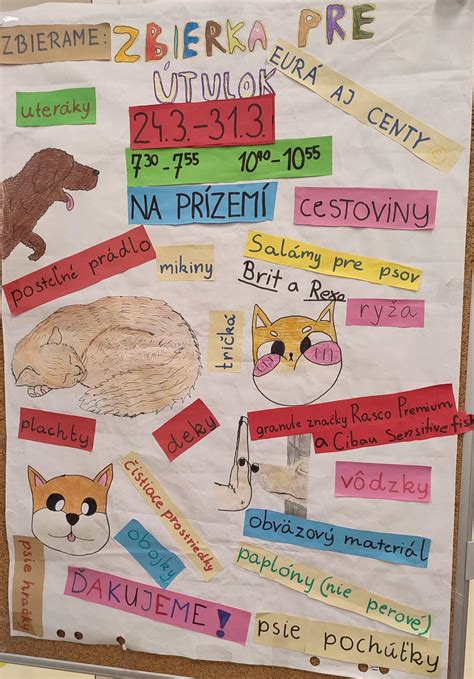 ZBIERKA PRE
ÚTULOK
ZBIERAME:
EURÁ AJ CENTY
uteráky
24.3.-31.3.
7³⁰-7⁵⁵ 10⁴⁰-10⁵⁵
NA PRÍZEMÍ
CESTOVINY
posteľné prádlo
mikiny
Salámy pre psov
Brit a Rexa
ryža
tričká
plachty
deky
granule značky Rasco Premium
a Cibau Sensitive fish
vôdzky
čistiace prostriedky
obojky
obväzový materiál
paplóny (nie perové)
psie hračky
ĎAKUJEME!
psie pochúťky